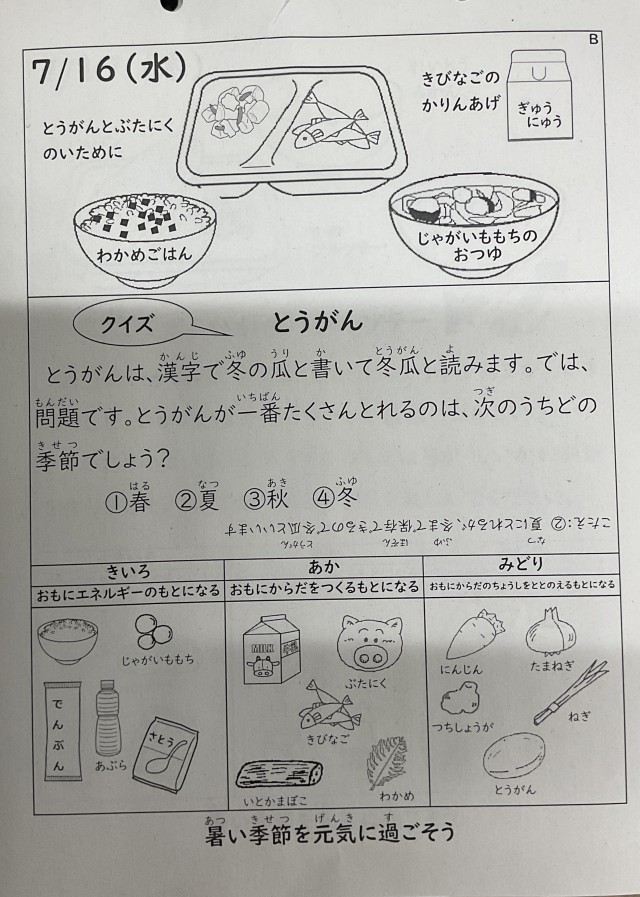 B
7/16(水)
とうがんとぶたにく
のいために
きびなごの
かりんあげ
ぎゅう
にゅう
わかめごはん
じゃがいももちの
おつゆ
クイズ
とうがん
とうがんは、漢字で冬の瓜と書いて冬瓜と読みます。では、
問題です。とうがんが一番たくさんとれるのは、次のうちどの
季節でしょう？
①春 ②夏 ③秋 ④冬
こたえ:② 夏にとれるが、冬まで保存できるので冬瓜といいます
きいろ
おもにエネルギーのもとになる
じゃがいももち
でんぷん
あぶら
さとう
あか
おもにからだをつくるもとになる
MILK
ぶたにく
きびなご
いとかまぼこ
わかめ
みどり
おもにからだのちょうしをととのえるもとになる
にんじん
たまねぎ
つちしょうが
ねぎ
とうがん
暑い季節を元気に過ごそう